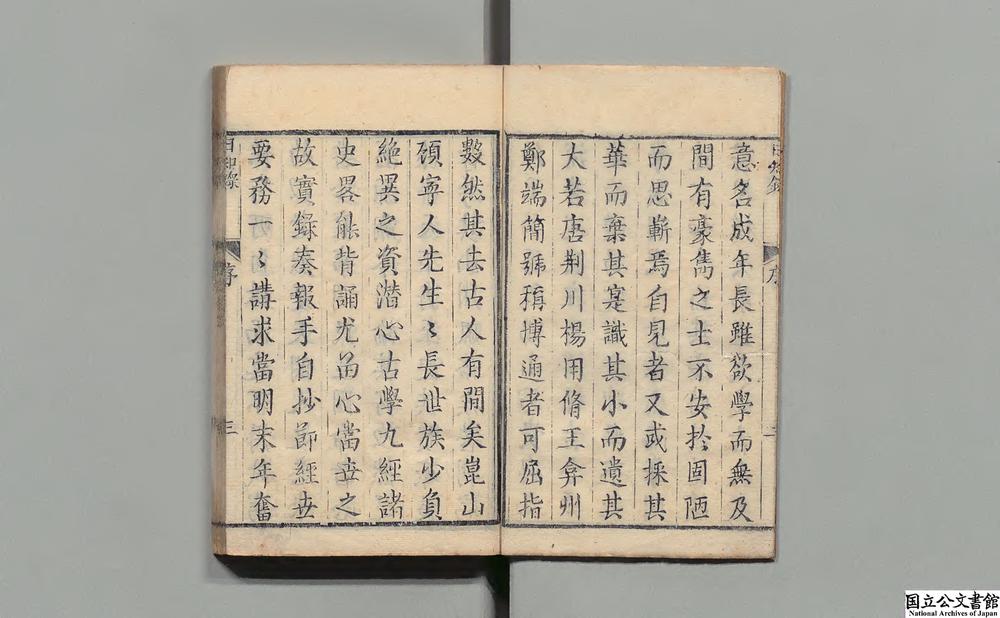 意名成年長雖欲學而無及
間有豪雋之士不安於固陋
而思嶄焉自見者又或採其
華而棄其寔識其小而遺其
大若唐荆川楊用脩王弇州
鄭端簡號稱博通者可屈指
數然其去古人有間矣崑山
頋寧人先生〻長世族少負
絶異之資潜心古學九經諸
史畧能背誦尤畄心當世之
故實錄奏報手自抄節經世
要務一〻講求當明末年奮
日知錄
序
三
国立公文書館
National Archives of Japan